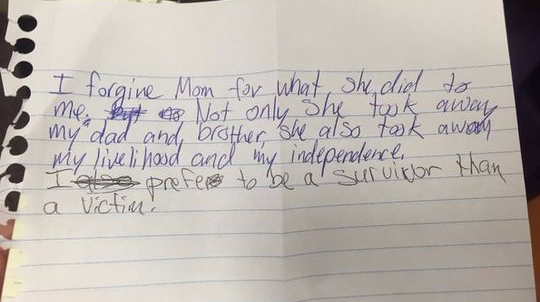 I forgive Mom for what she did to
me. Not only she took away
my dad and brother, she also took away
my livelihood and my independence.
I prefer to be a survivor than
a victim.